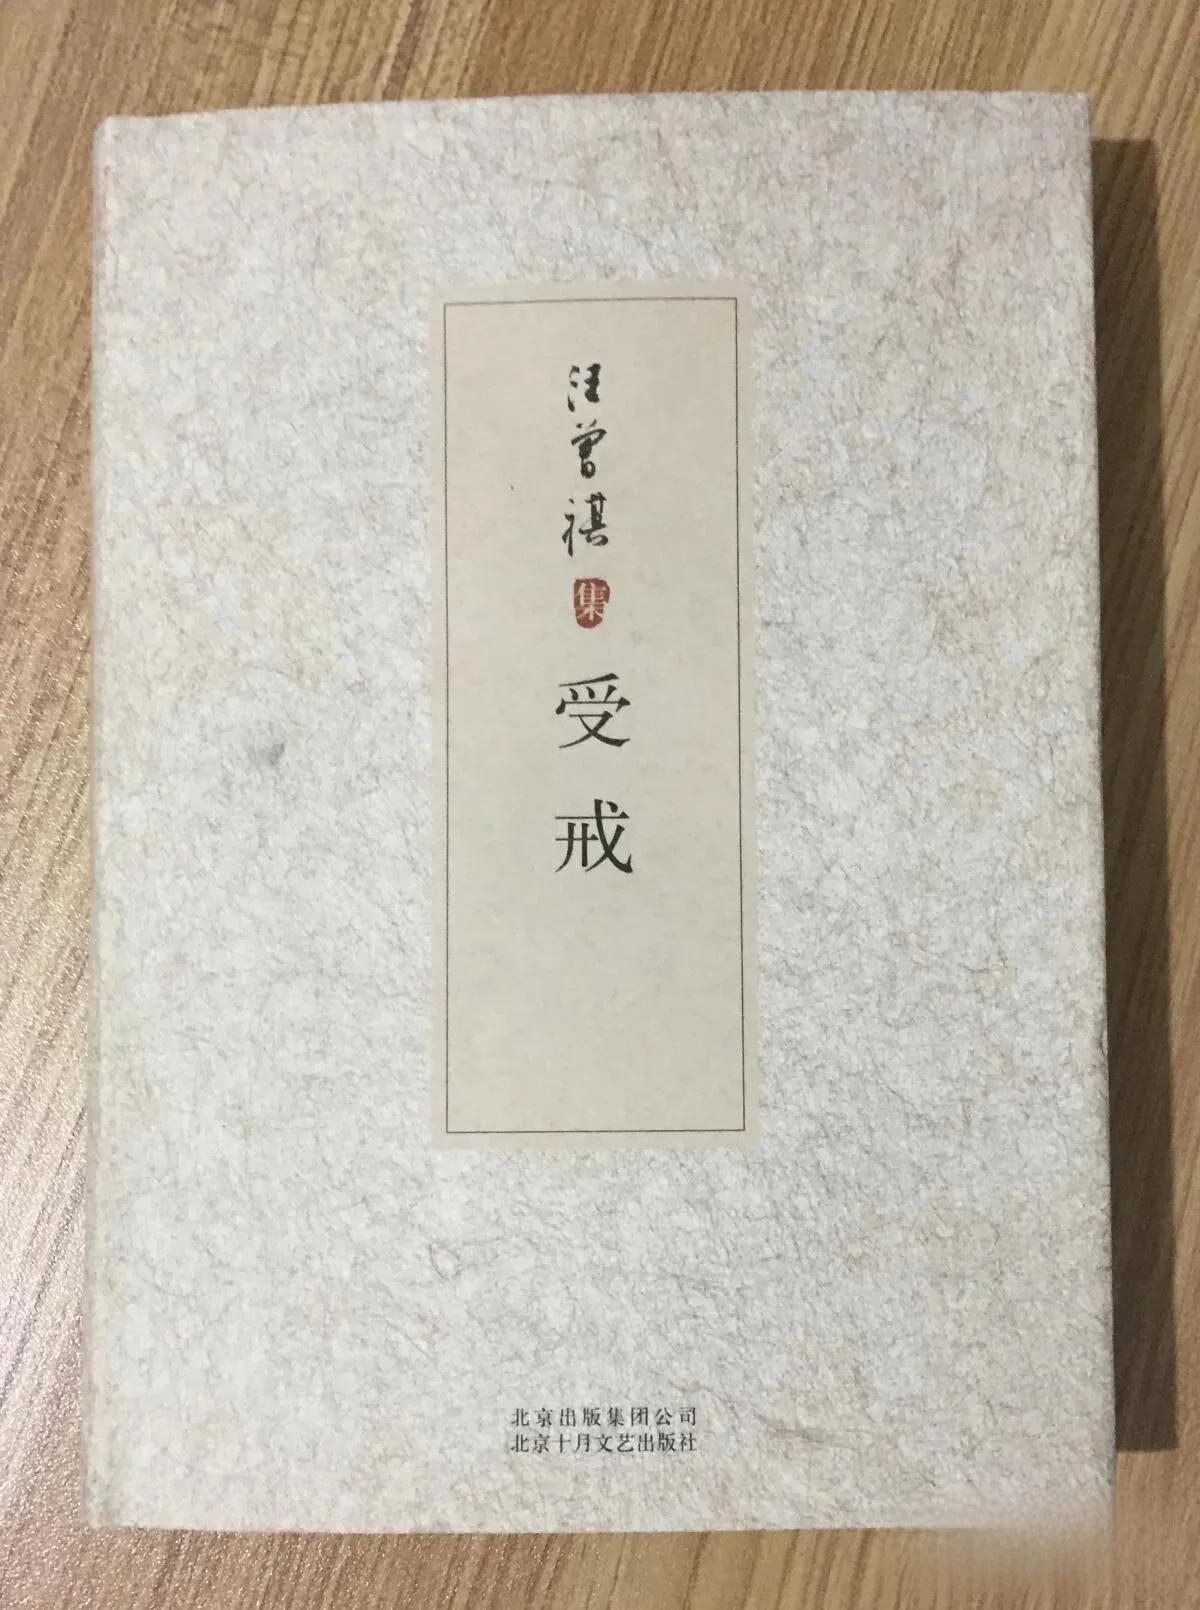 汪曾祺
集
受戒
北京出版集团公司
北京十月文艺出版社